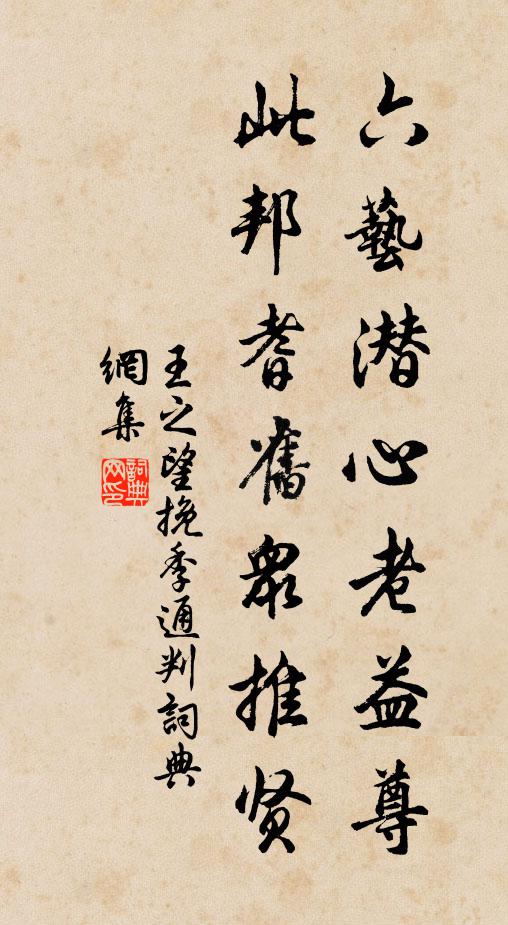 六藝潜心老益尊
此邦耆舊衆推贤
王之望挽季通判詞典
網集
詞典
网印